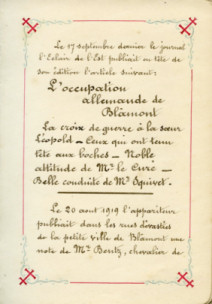 Le 17 septembre dernier le journal
l'Eclair de l'Est publiait en tête de
son édition l'article suivant:
L'occupation
allemande de
Blâmont
La croix de guerre à la sœur
Léopold - Ceux qui ont tenu
tête aux boches - Noble
attitude de Mr le Curé -
Belle conduite de Mr Equivet.
Le 20 aout 1919 l'appariteur
publiait dans les rues dévastées
de la petite ville de Blâmont une
note de Mr Bentz, chevalier de